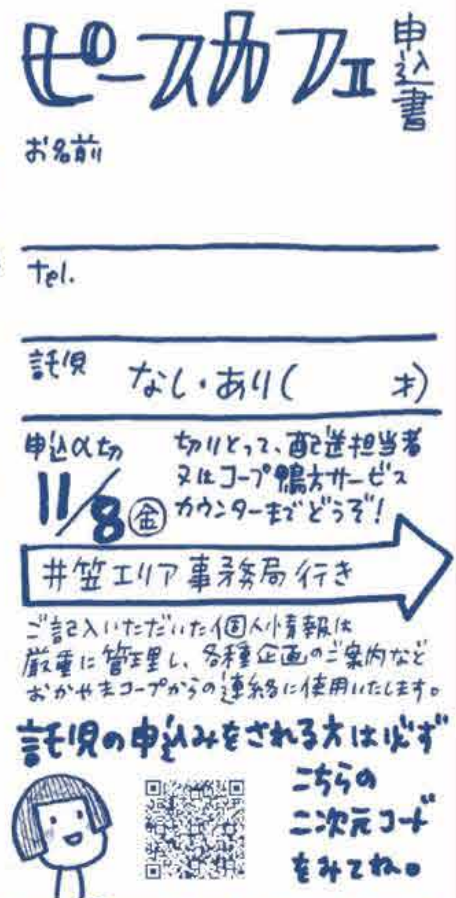 ピースカフェII 申込書
お名前
tel.
託児 なし・あり( 才)
申込〆切
11/8金
切りとって、配送担当者
又はコープ鴨方サービス
カウンターまでどうぞ!
井笠エリア事務局行き
ご記入いただいた個人情報は
厳重に管理し、各種企画のご案内など
おかやまコープからの連絡に使用いたします。
託児の申込みをされる方は必ず
こちらの
二次元コード
をみてね。